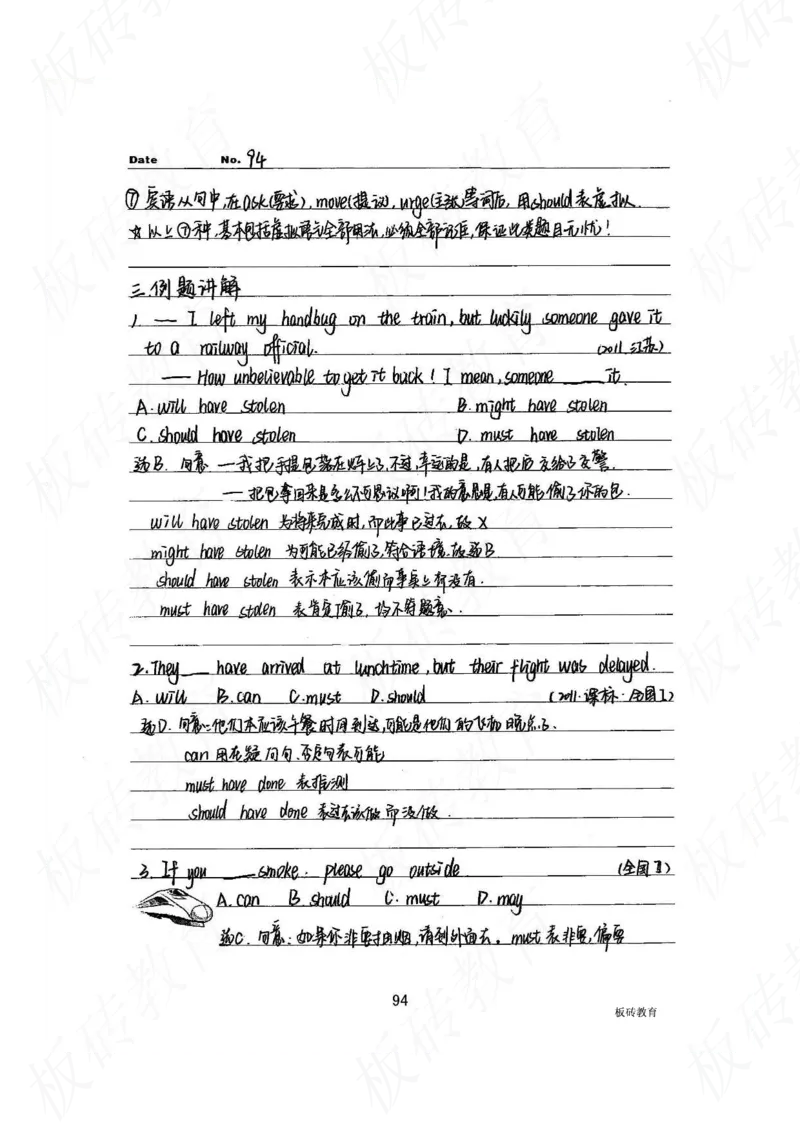 Date No. 94
⑦ 宾语从句中,在ask(要求),move(提议),urge(主张)等词后,用should表虚拟.
☆以上⑦种,基本包括虚拟语气全部用法,必须全部记准,保证此类题目无忧!
三.例题讲解
1. — I left my handbug on the train, but luckily someone gave it
to a railway official. (2011.江苏)
— How unbelievable to get it back! I mean, someone ____ it.
A. will have stolen B. might have stolen
C. should have stolen D. must have stolen
选B. 句意 —我把手提包落在火车上了,不过,幸运的是,有人把它交给了交警.
—把包拿回来是多么不可思议啊!我的意思是,有人可能偷了你的包.
will have stolen 为将来完成时,而此事已过去,故X
might have stolen 为可能已经偷了,符合语境.故选B
should have stolen 表示本应该偷而事实上却没有.
must have stolen 表肯定偷了,均不符题意.
2. They ___ have arrived at lunchtime, but their flight was delayed.
A. will B. can C. must D. should (2011.课标.全国I)
选D. 句意:他们本应该午餐时间到达,可能是他们的飞机晚点了.
can 用在疑问句、否定句表可能
must have done 表推测
should have done 表过去该做而没做.
3. If you ____ smoke. please go outside (全国II)
A. can B. should C. must D. may
选C. 句意:如果你非要抽烟,请到外面去. must表非要,偏要
94
板砖教育